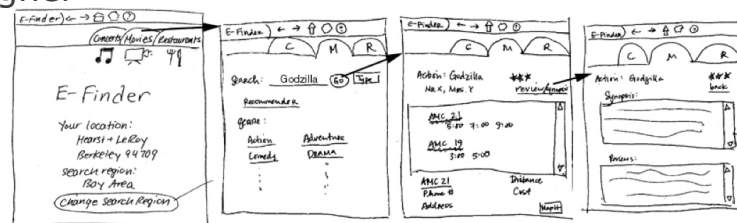 E-Finder
Concerts Movies Restaurants
E-Finder
Your location:
Hearst + LeRoy
Berkeley 94709
search region:
Bay Area
Change Search Region
E-Finder
C M R
Search: Godzilla Go
Recommender
genre:
Action Adventure
Comedy DRAMA
E-Finder
C M R
Action: Godzilla ***
review/synopsis
AMC 21
5:00 7:00 9:00
AMC 19
3:00 5:00
AMC 21 Distance
Phone # Cost
Address MapIt
E-Finder
C M R
Action: Godzilla ***
back
Synopsis:
Reviews: